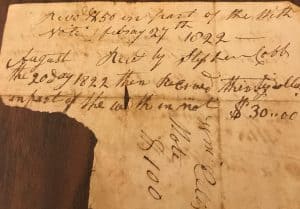 Recvd $50 in part of the With
Note May 27th 1822 —
August Recd by Stephen Cobb
the 20 day 1822 then Received thirty dollars
in part of the with in not $30..00
Wm Cobb
Note
$100